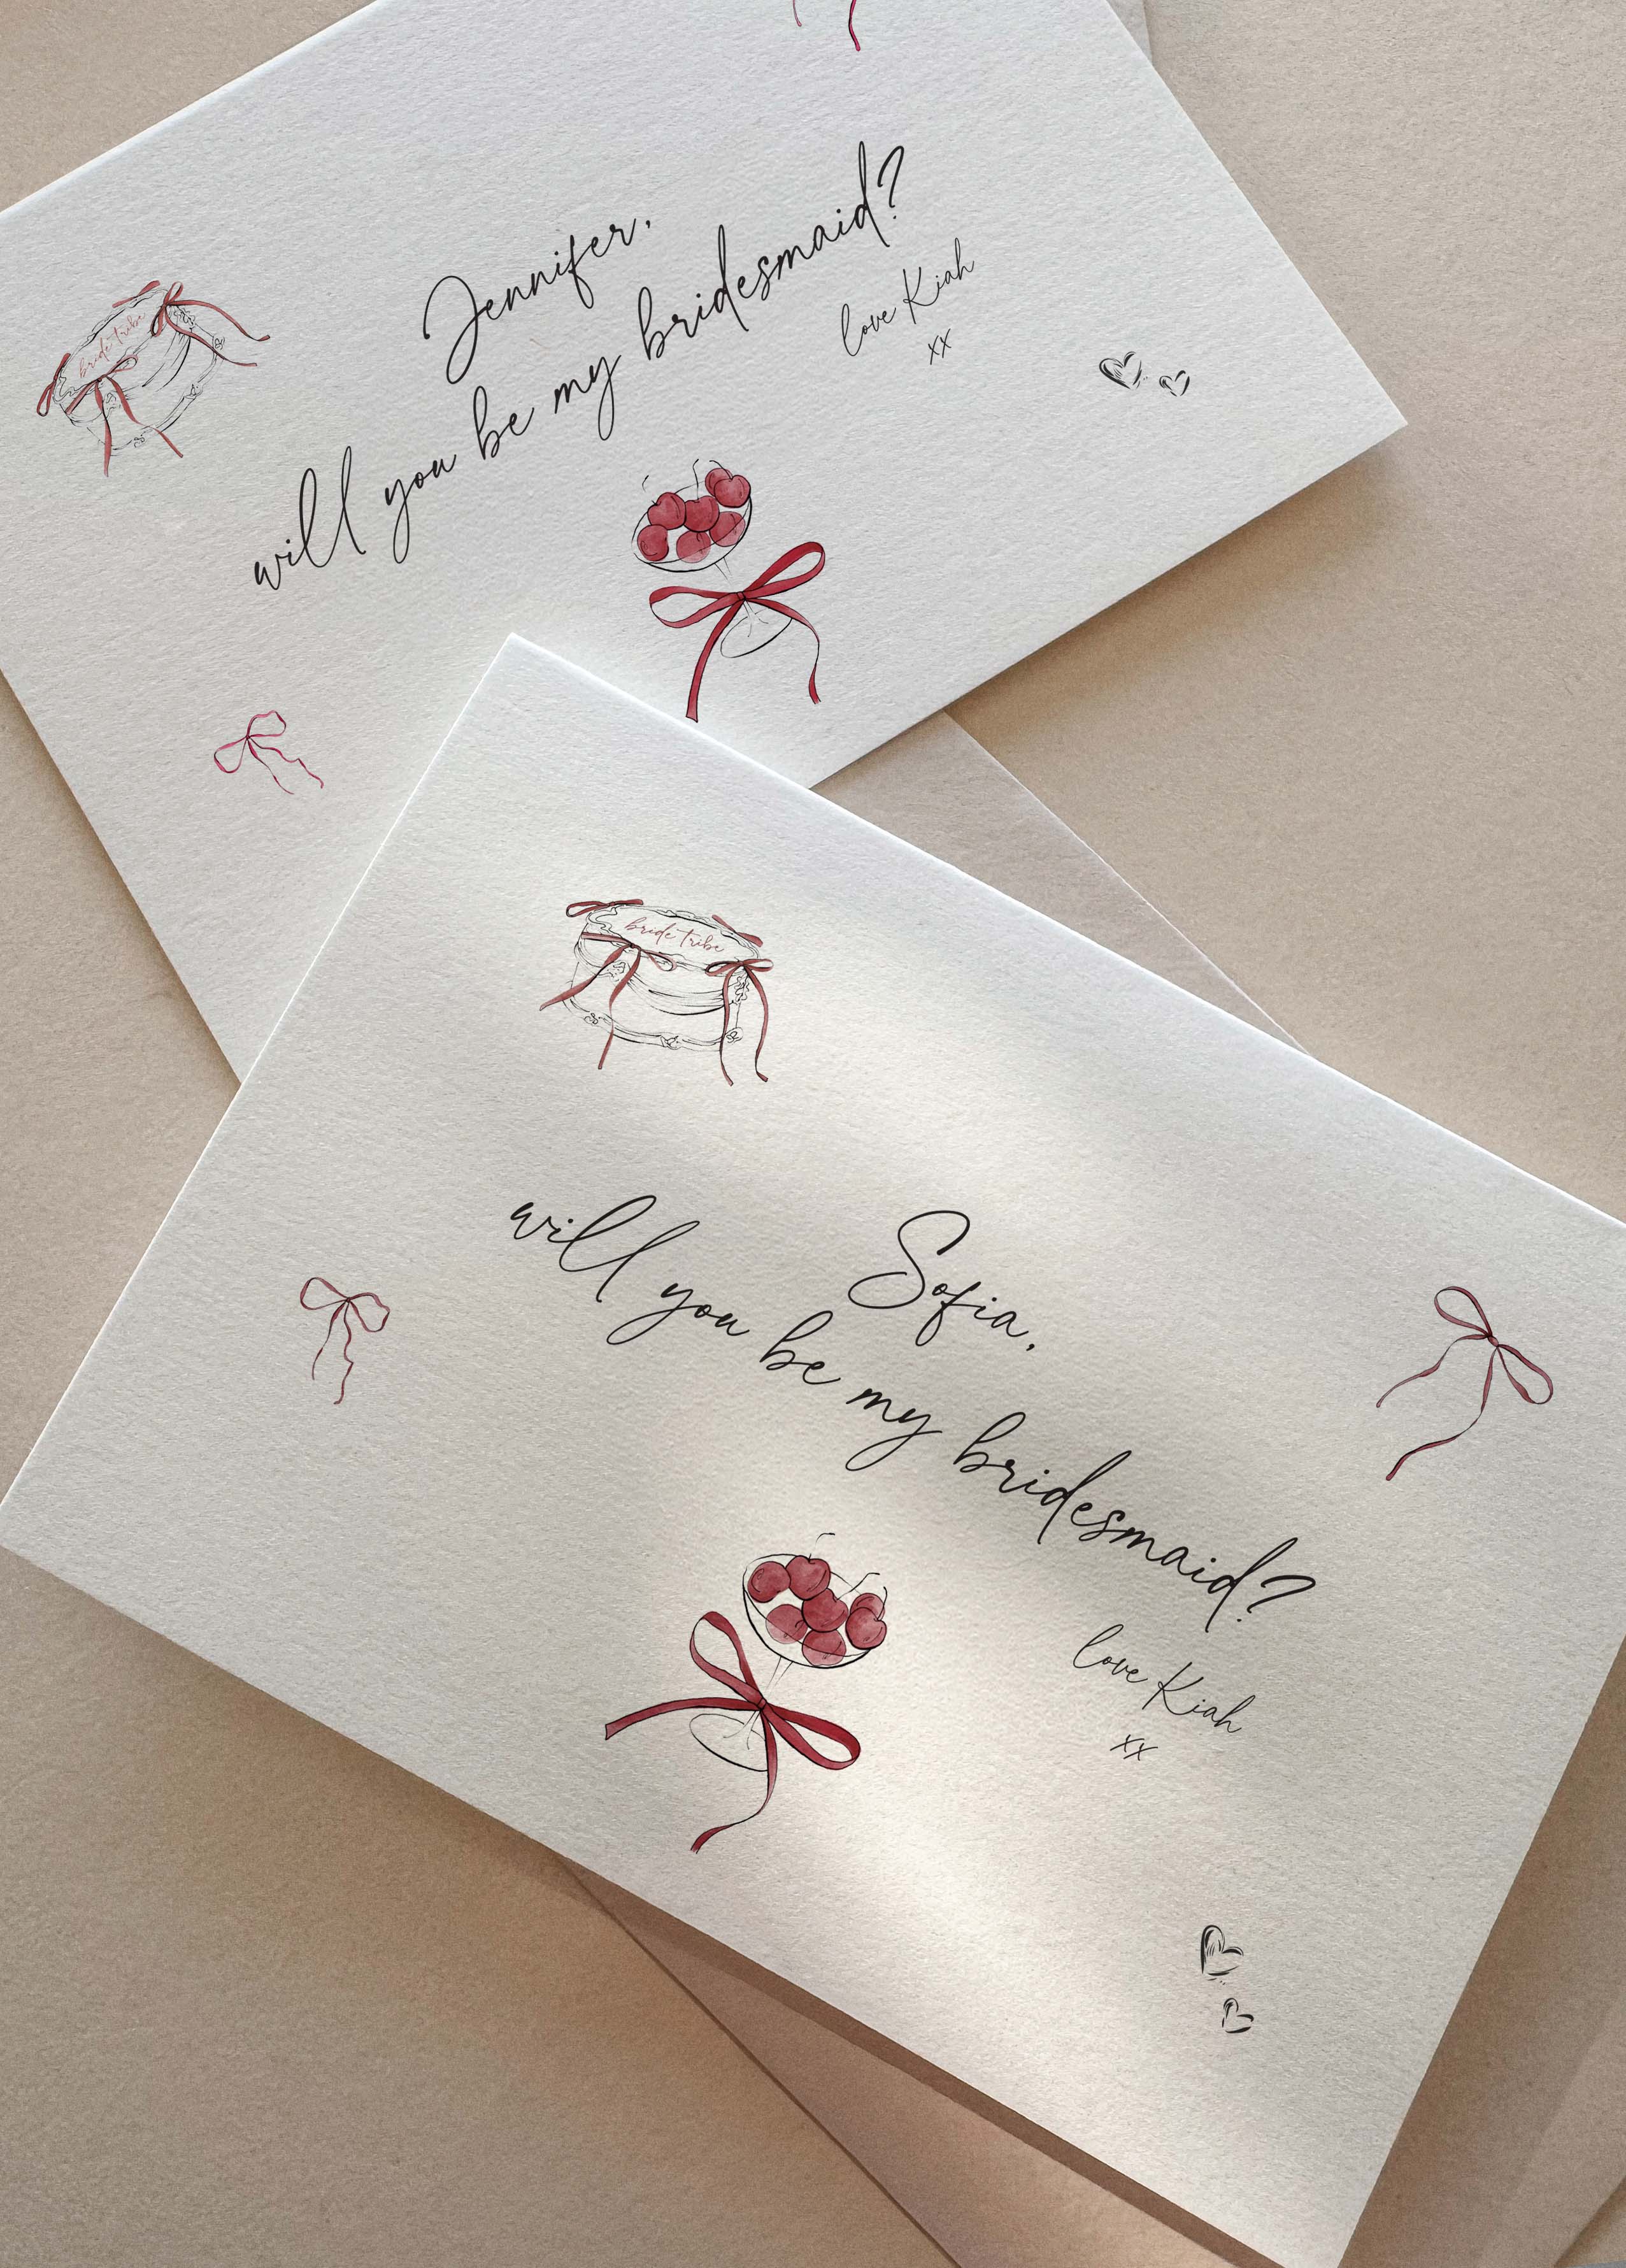 bride tribe
Jennifer,
will you be my bridesmaid?
love Kiah
xx
bride tribe
Sofia,
will you be my bridesmaid?
love Kiah
xx